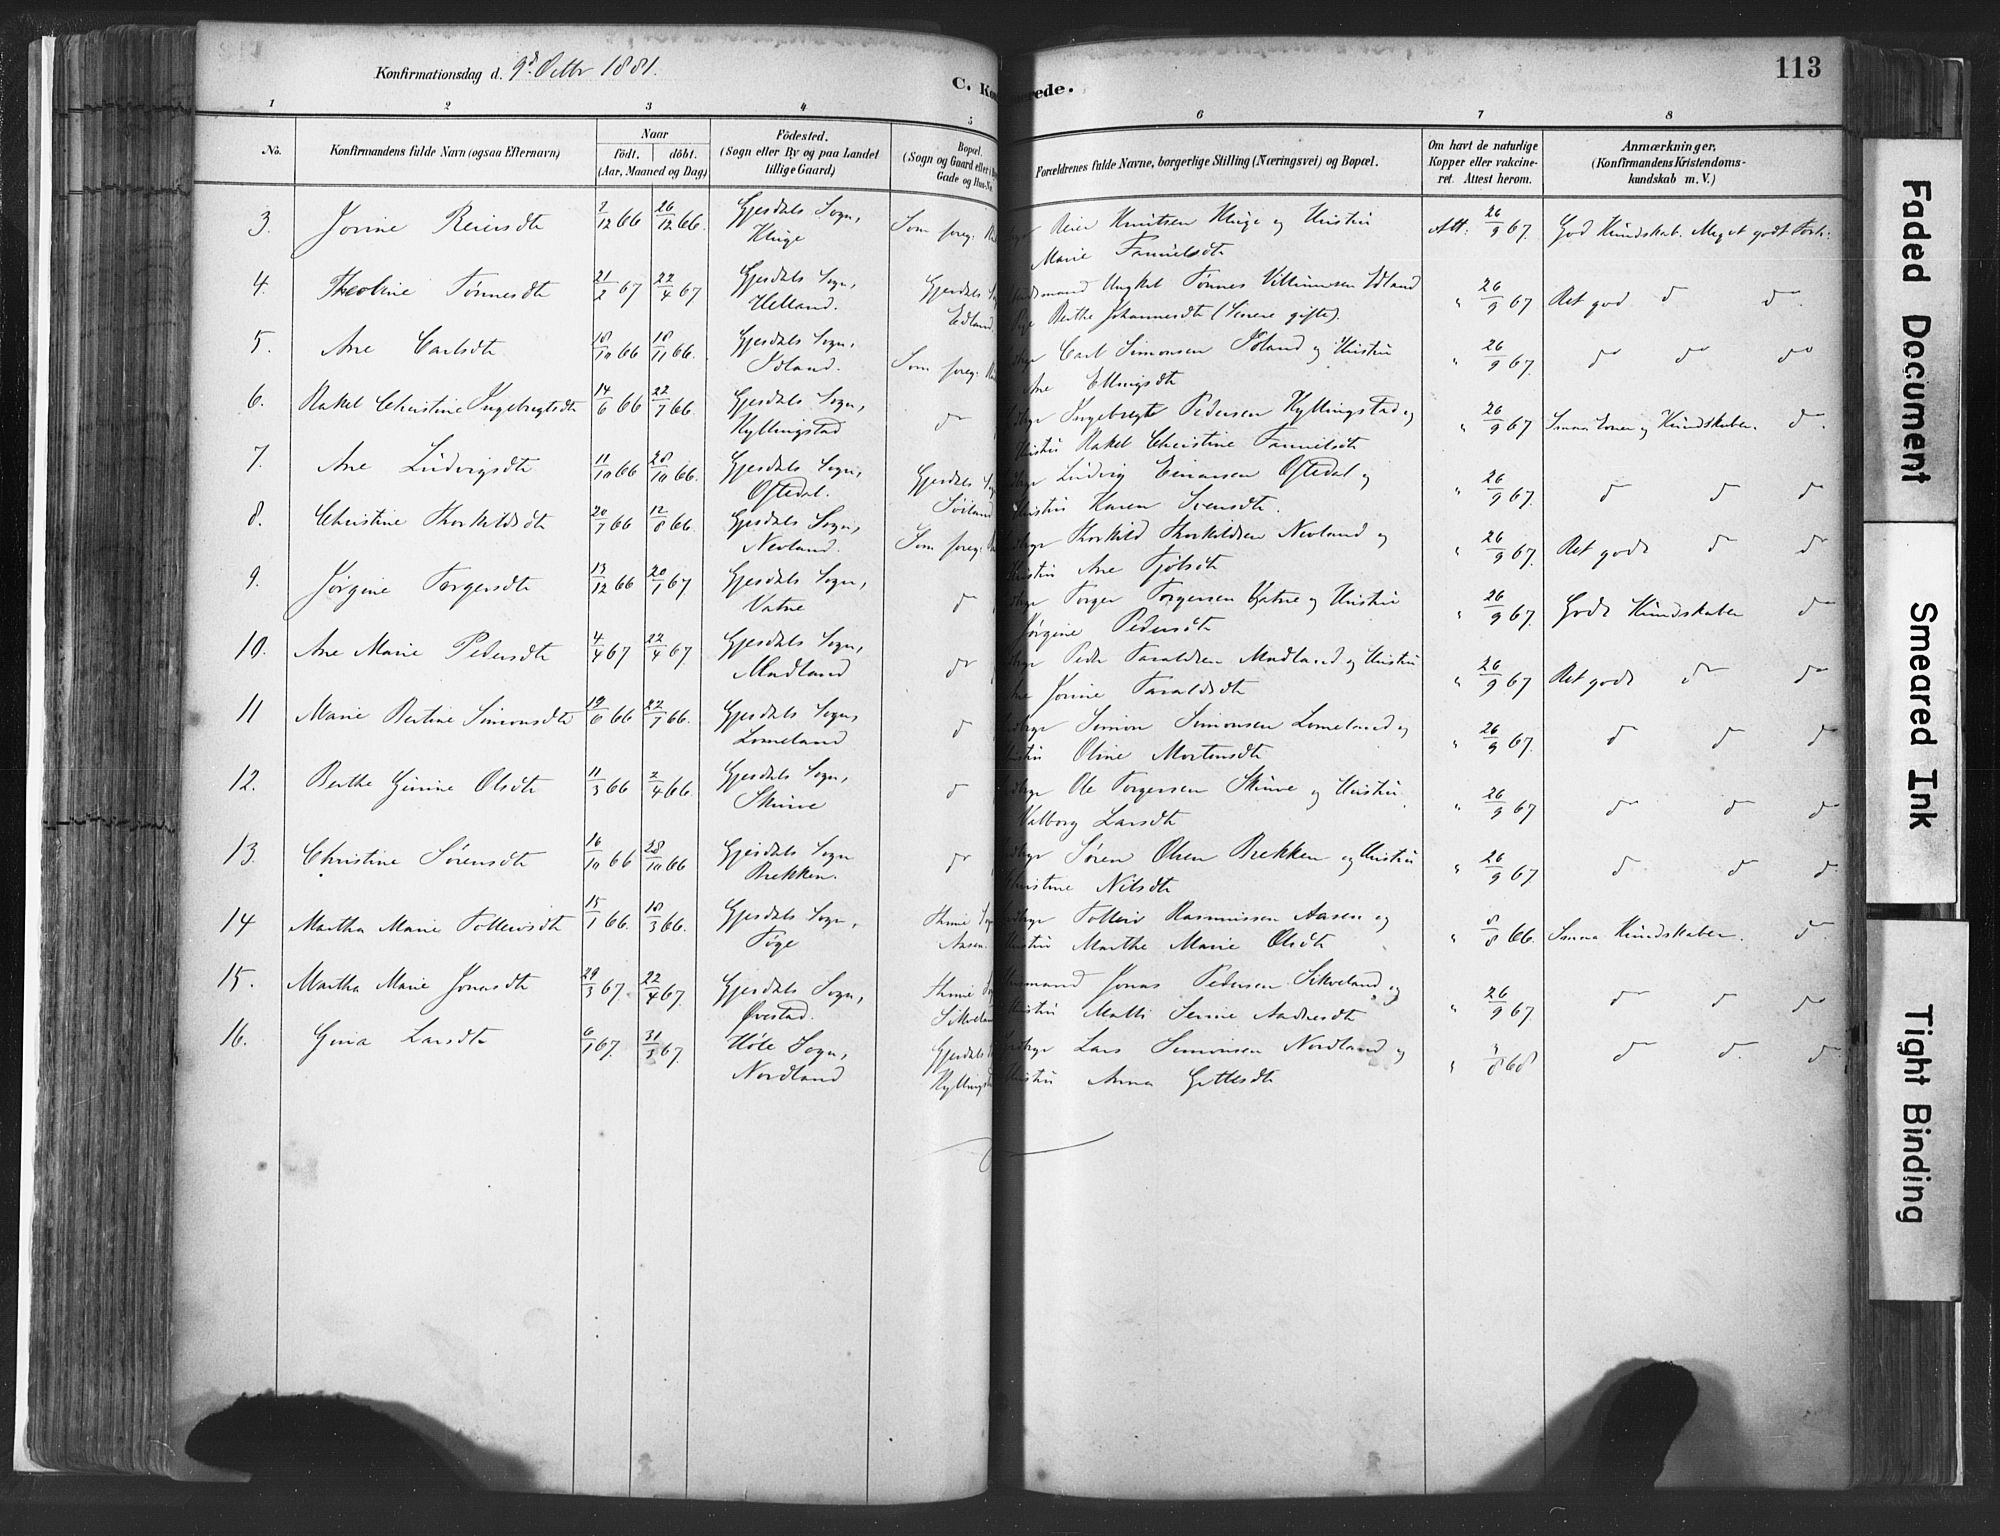 Konfirmationsdag d. 9d Octbr 1881.
C. Kon
erede.
113
1 2 3 4 5 6 7 8
No.
Konfirmandens fulde Navn (ogsaa Efternavn)
Naar
født. døbt.
(Aar, Maaned og Dag)
Födested.
(Sogn eller By og paa Landet
tillige Gaard)
Bopæl.
(Sogn og Gaard eller
Gade og Hus-No.
Forældrenes fulde Navne, borgerlige Stilling (Næringsvei) og Bopæl.
Om havt de naturlige
Kopper eller vakcine-
ret. Attest herom.
Anmærkninger,
(Konfirmandens Kristendoms-
kundskab m. V.)
3. Jorine Reiersdtr 2/12 66 26/12 66. Gjesdals Sogn, Som foreg: Reier Knutsen Kluge og Hustru Att: 26/9 67. God Kundskab. Meget godt Forh:
Kluge Marie Tannielsdtr
4. Theoline Tønnesdtr 21/2 67 22/4 67 Gjesdals Sogn, Gjesdals Ungkal Tønnes Villumsen Edland " 26/9 67. Ret god do do
Helland. Edland, Pige Berthe Johannesdtr (Senere gifte).
5. Ane Carlsdtr 18/10 66 18/11 66. Gjesdals Sogn, Som foreg: Carl Simonsen Idland og Hustru " 26/9 67. do do do
Idland. Ane Ellingsdtr
6. Rakel Christine Ingebregtsdtr 14/6 66 22/7 66. Gjesdals Sogn, do Ingebregt Pedersen Kyllingstad og " 26/9 67 Smaa Evner og Kundskaber. do.
Kyllingstad Hustru Rakel Christine Tannielsdtr
7. Ane Ludvigsdtr 11/10 66 28/10 66. Gjesdals Sogn, Gjesdals Ludvig Einarsen Oftedal og " 26/9 67. do do do
Oftedal. Søiland Hustru Karen Svensdtr.
8. Christine Thorkildsdtr 20/7 66 12/8 66. Gjesdals Sogn, Som foreg: Thorkild Thorkildsen Nevland og " 26/9 67. Ret gode do do
Nevland. Hustru Ane Fjølsdtr
9. Jørgine Torgersdtr 13/12 66 20/1 67 Gjesdals Sogn, do Torger Torgersen Vatne og Hustru " 26/9 67. Gode Kundskaber do
Vatne Jørgine Pedersdtr
10. Ane Marie Pedersdtr 4/4 67 22/4 67 Gjesdals Sogn, do Peder Taraldsen Madland og Hustru " 26/9 67 Ret gode do do
Madland Ane Jorine Taraldsdtr
11 Marie Bertine Simonsdtr 19/6 66 22/7 66. Gjesdals Sogn, do Simon Simonsen Lomeland og " 26/9 67. do do do
Lomeland Hustru Oline Mortensdtr
12. Berthe Gurine Olsdtr 11/3 66 2/4 66. Gjesdals Sogn, do Ole Torgersen Skurve og Hustru " 26/9 67 do do do
Skurve Valborg Larsdtr
13. Christine Sørensdtr 16/10 66 28/10 66 Gjesdals Sogn do Søren Olsen Brekken og Hustru " 26/9 67 do do do
Brekken. Christine Nilsdtr
14 Martha Marie Tollevsdtr 15/1 66. 18/3 66. Gjesdals Sogn, Thime Tolleiv Rasmussen Aasen og " 8/8 66. Smaa Kundskaber. do
Føge Aasen. Hustru Marthe Marie Olsdtr
15. Martha Marie Jonasdtr 29/3 67. 22/4 67. Gjesdals Sogn, Thime Jonas Pedersen Sikveland og " 26/9 67 do do do
Øvestad. Sikveland Hustru Malli Serine Andersdtr
16. Gina Larsdtr 6/1 67. 31/3 67. Høle Sogn, Gjesdals Lars Simonsen Nordland og " 8 68 do do. do
Nordland Kyllings Hustru Anna Gittesdtr
Faded Document
Smeared Ink
Tight Binding